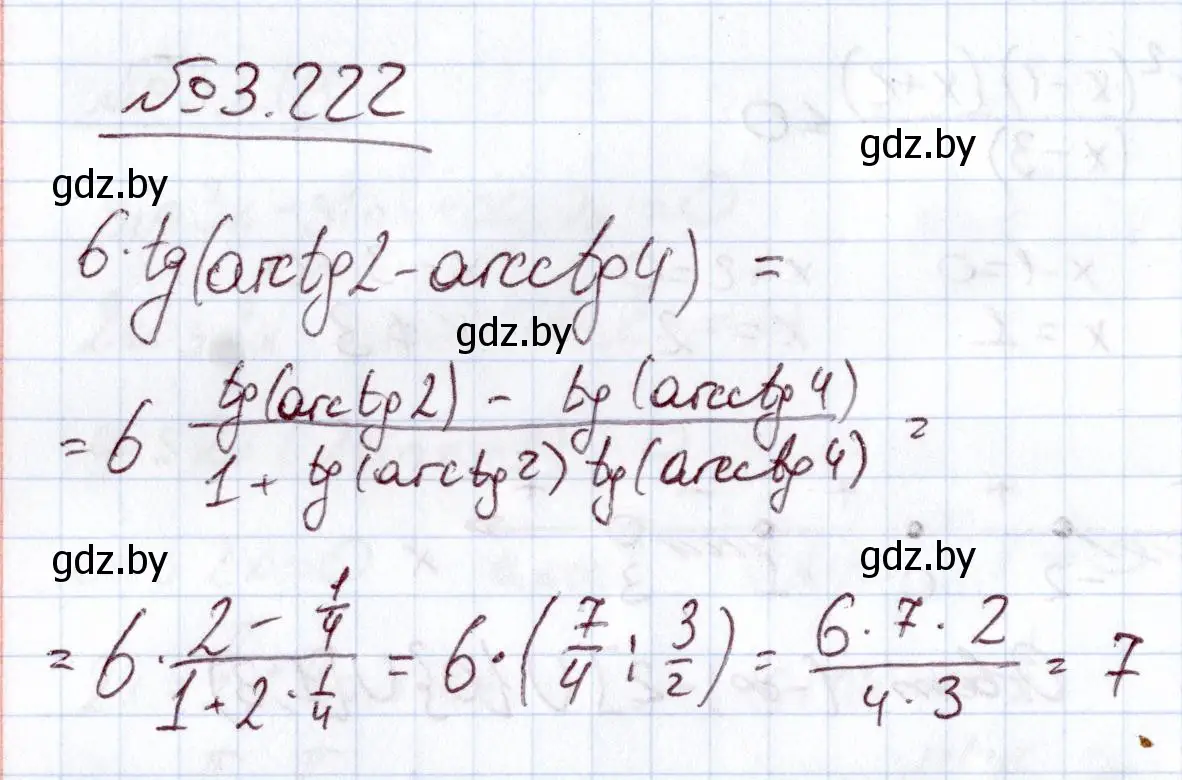 №3.222
gdz.by
gdz.by
6·tg(arctg2-arcctg4) =
gdz.by
= 6 \frac{tg(arctg2) - tg(arcctg4)}{1 + tg(arctg2) tg(arcctg4)} =
gdz.by
gdz.by
= 6·\frac{2 - \frac{1}{4}}{1 + 2·\frac{1}{4}} = 6·(\frac{7}{4} : \frac{3}{2}) = \frac{6·7·2}{4·3} = 7